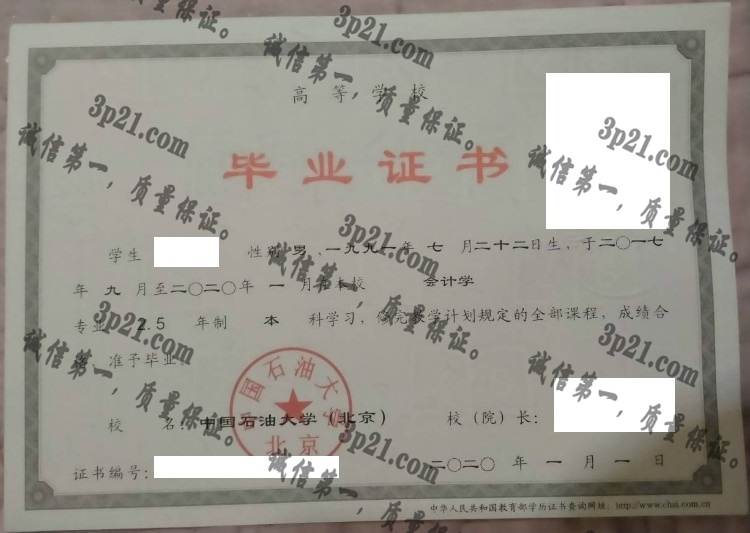 高等学校
毕业证书
学生 性别 男 ,一九九一年 七 月二十二日生,于二〇一七
年 九 月至二〇二〇年 一 月在本校 会计学
专业 2.5 年制 本 科学习,修完教学计划规定的全部课程,成绩合
格,准予毕业
校 名:中国石油大学(北京) 校(院)长:
中国石油大学
北京
证书编号: 二〇二〇 年 一 月 一 日
中华人民共和国教育部学历证书查询网址:http://www.chsi.com.cn
诚信第一,质量保证。
3p21.com
诚信第一,质量保证。
3p21.com
诚信第一,质量保证。
3p21.com
诚信第一,质量保证。
3p21.com
诚信第一,质量保证。
3p21.com
诚信第一,质量保证。
3p21.com
诚信第一,质量保证。
3p21.com
诚信第一,质量保证。